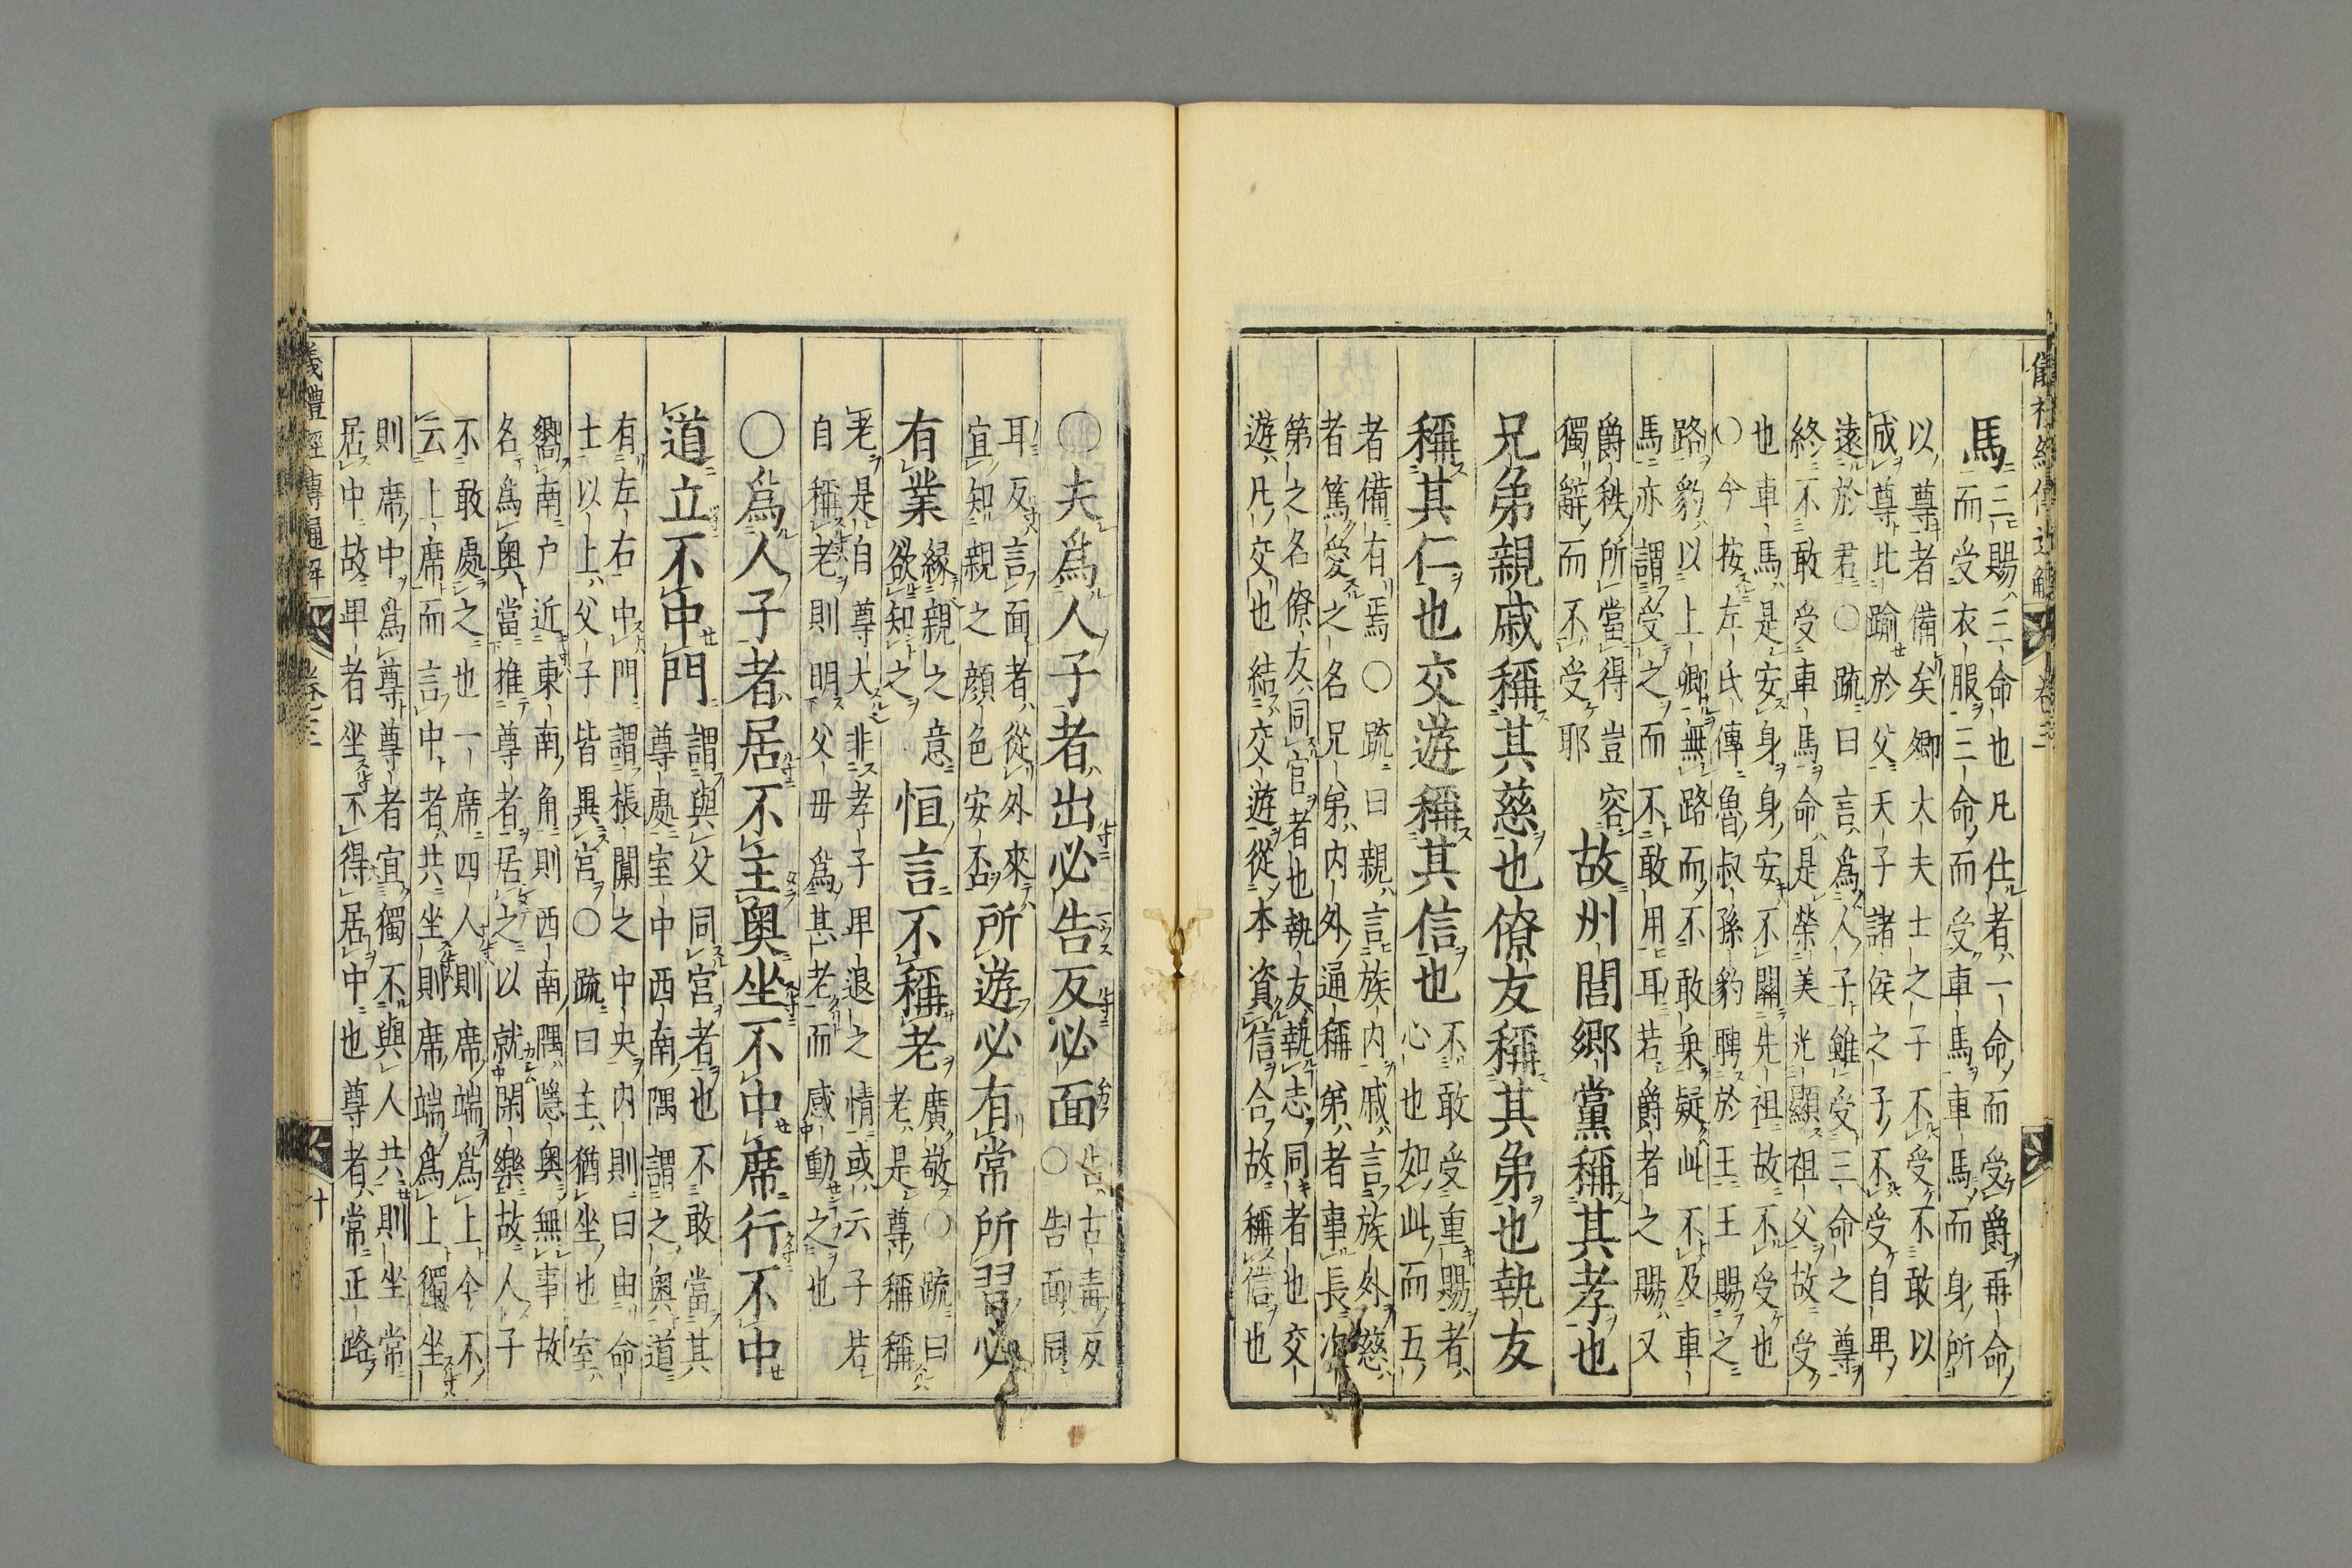 馬三賜三命也凡仕者一命而受爵再命
而受衣服三命而受車馬車馬而身所
以尊者備矣卿大夫士之子不受不敢以
成尊比踰於父天子諸侯之子不受自卑
遠於君○疏曰言爲人子雖受三命之尊
終不敢受車馬命是榮美光顯祖父故受
也車馬是安身身安不關先祖故不受也
○今按左氏傳魯叔孫豹聘於王王賜之
路豹以上卿無路而不敢乗疑此不及車
馬亦謂受之而不敢用耳若爵者之賜又
爵秩所當得豈容
獨辭而不受耶
故州閭鄉黨稱其孝也
兄弟親戚稱其慈也僚友稱其弟也執友
稱其仁也交遊稱其信也
不敢受重賜者
心也如此而五
者備有焉○疏曰親言族内戚言族外慈
者篤愛之名兄弟内外通稱弟者事長次
第之名僚友同官者也執友執志同者也交
遊凡交也結交遊從本資信合故稱信也
○夫爲人子者出必告反必面
告古毒反
○告面同
耳反言面者從外來
宜知親之顔色安否
所遊必有常所習必
有業
縁親之意
欲知之
恒言不稱老
廣敬○疏曰
老是尊稱稱
老是自尊大非孝子卑退之情或云子若
自稱老則明父母爲甚老而感動之也
○爲人子者居不主奥坐不中席行不中
道立不中門
謂與父同宫者也不敢當其
尊處室中西南隅謂之奥道
有左右中門謂棖闑之中央内則曰由命
士以上父子皆異宫○疏曰主猶坐也室
嚮南户近東南角則西南隅隱奥無事故
名爲奥當推尊者居之以就閑樂故人子
不敢處之也一席四人則席端爲上今不
云上席而言中者共坐則席端爲上獨坐
則席中爲尊尊者宜獨不與人共則坐常
居中故卑者坐不得居中也尊者常正路
儀禮經傳通解
卷三
十